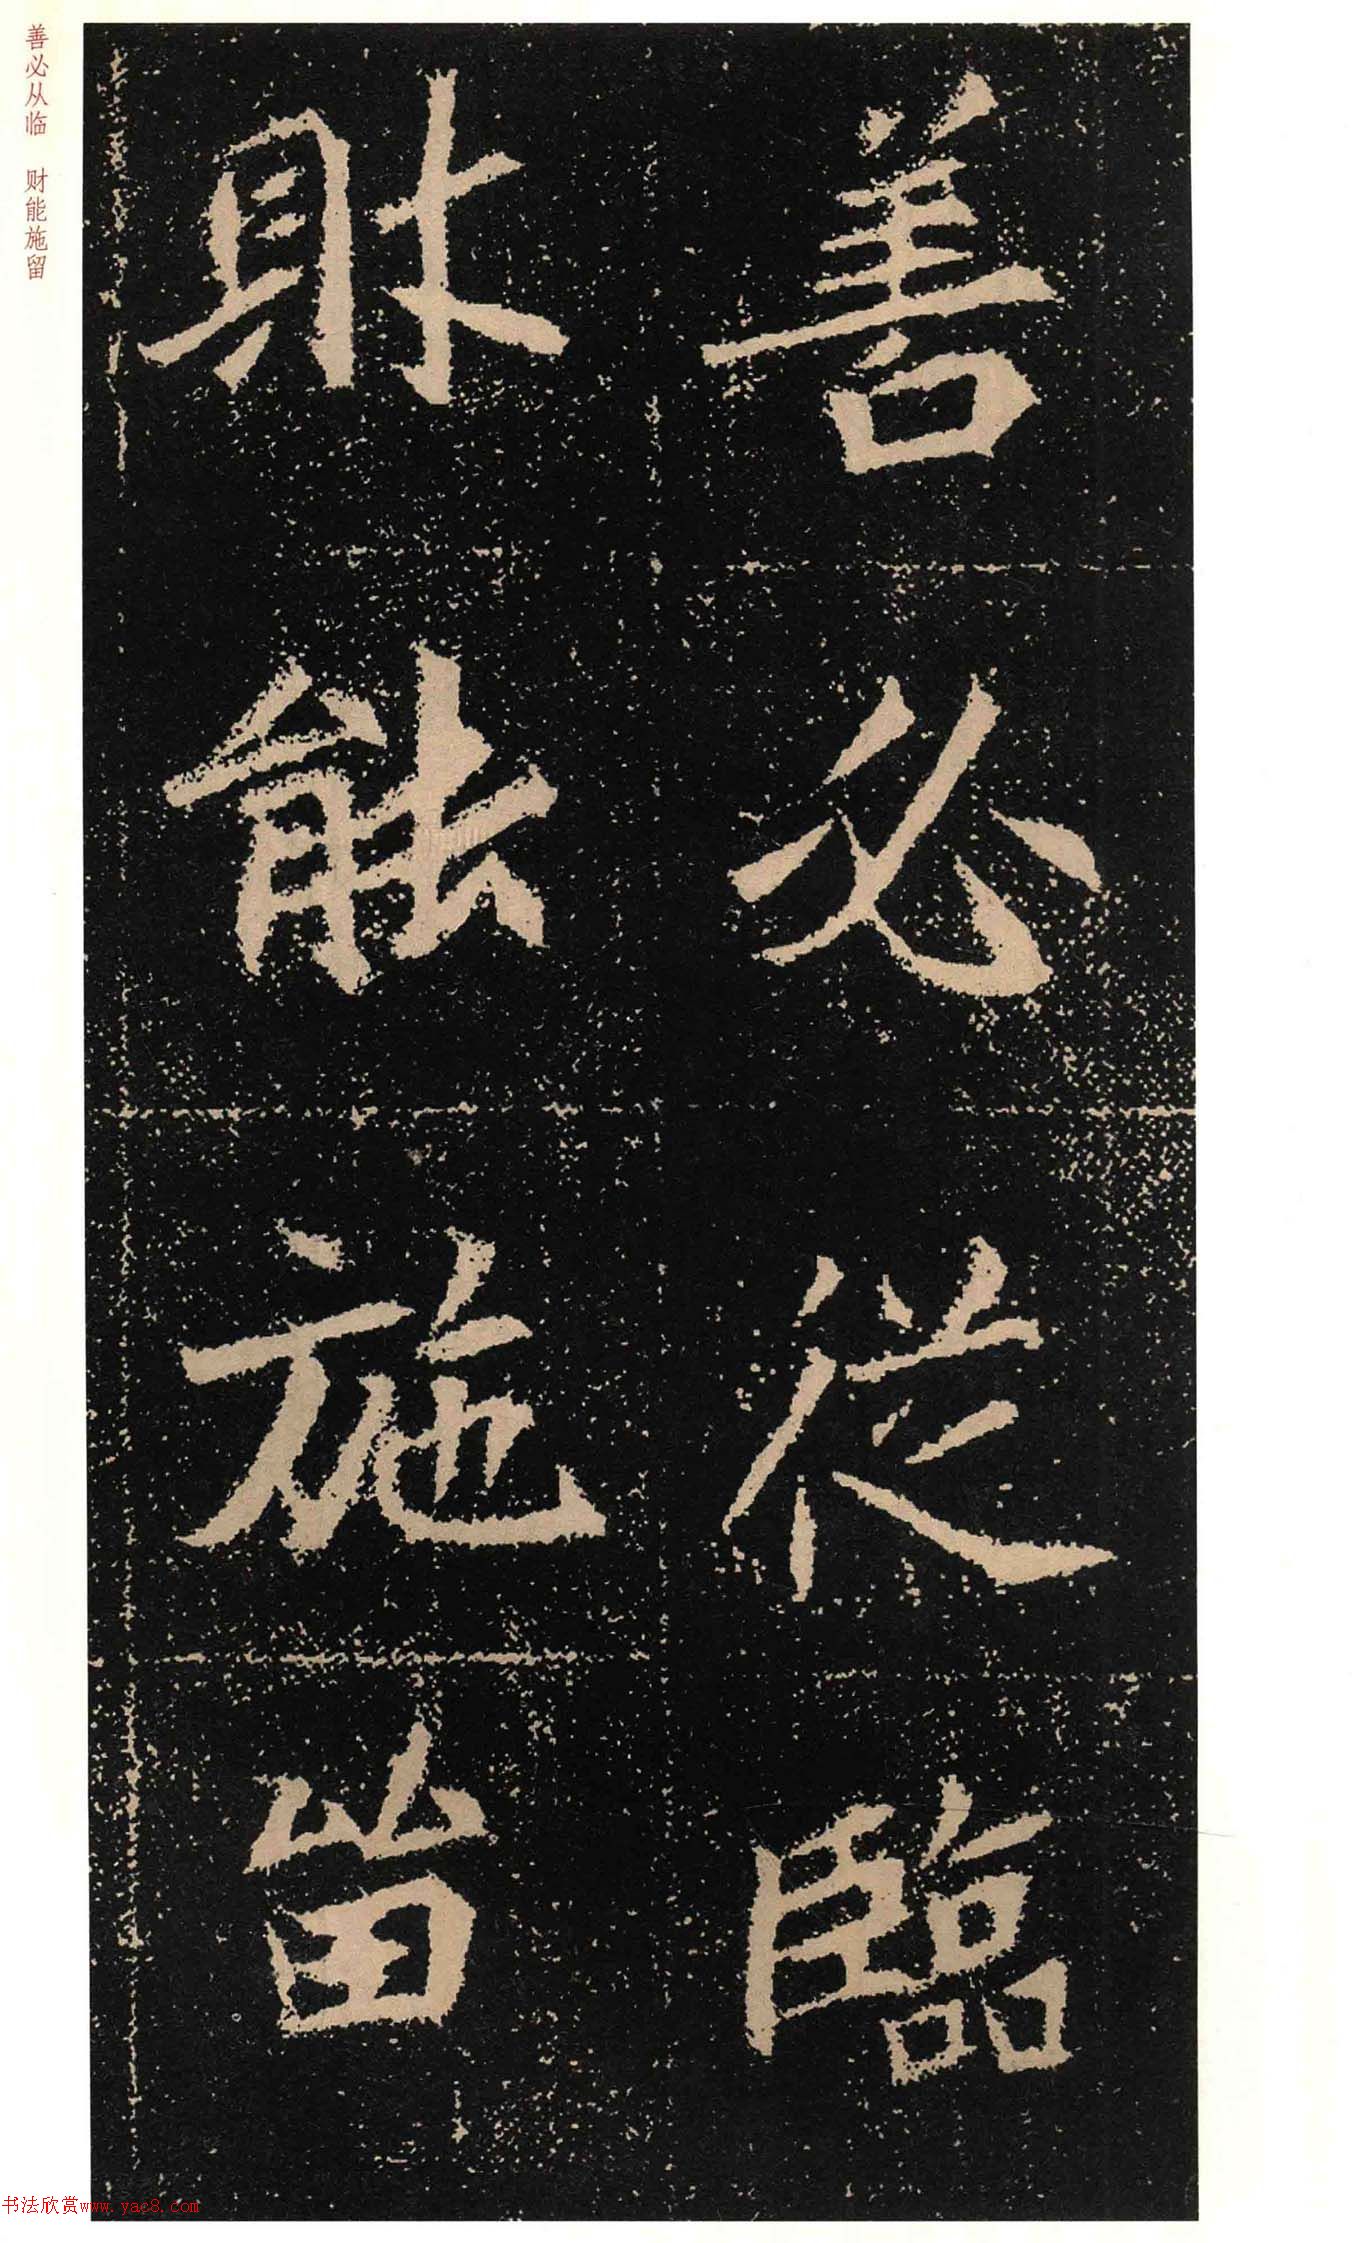 善必從臨
財能施㽞
善必从临 财能施留
书法欣赏www.yac8.com